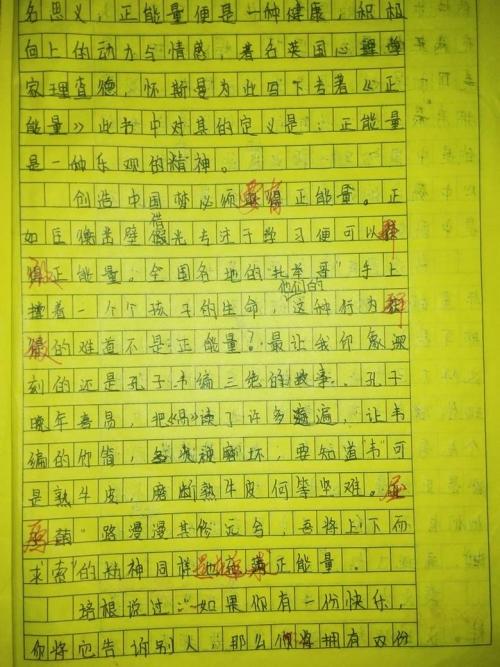 名思义，正能量便是一种健康，积极
向上的动力与情感，著名英国心理学
家理查德 怀斯曼为此写下专著《正
能量》此书中对其的定义是：正能量
是一种乐观的精神。
创造中国梦必须要有正能量。正
如匡衡凿壁借光专注于学习便可以释
放正能量。全国各地的"托举哥"手上
他们的
撑着一个个孩子的生命，这种行为释
放的难道不是正能量？最让我印象深
刻的还是孔子韦编三绝的故事。孔子
晚年喜易，把《易》读了许多遍，让韦
编的竹简，多次被磨坏，要知道"韦"可
是熟牛皮，磨断熟牛皮何等坚难。屈
原"路漫漫其修远兮，吾将上下而
求索"的精神同样也正能量。
培根说过："如果你有一份快乐，
你将它告诉别人，那么你将拥有两份